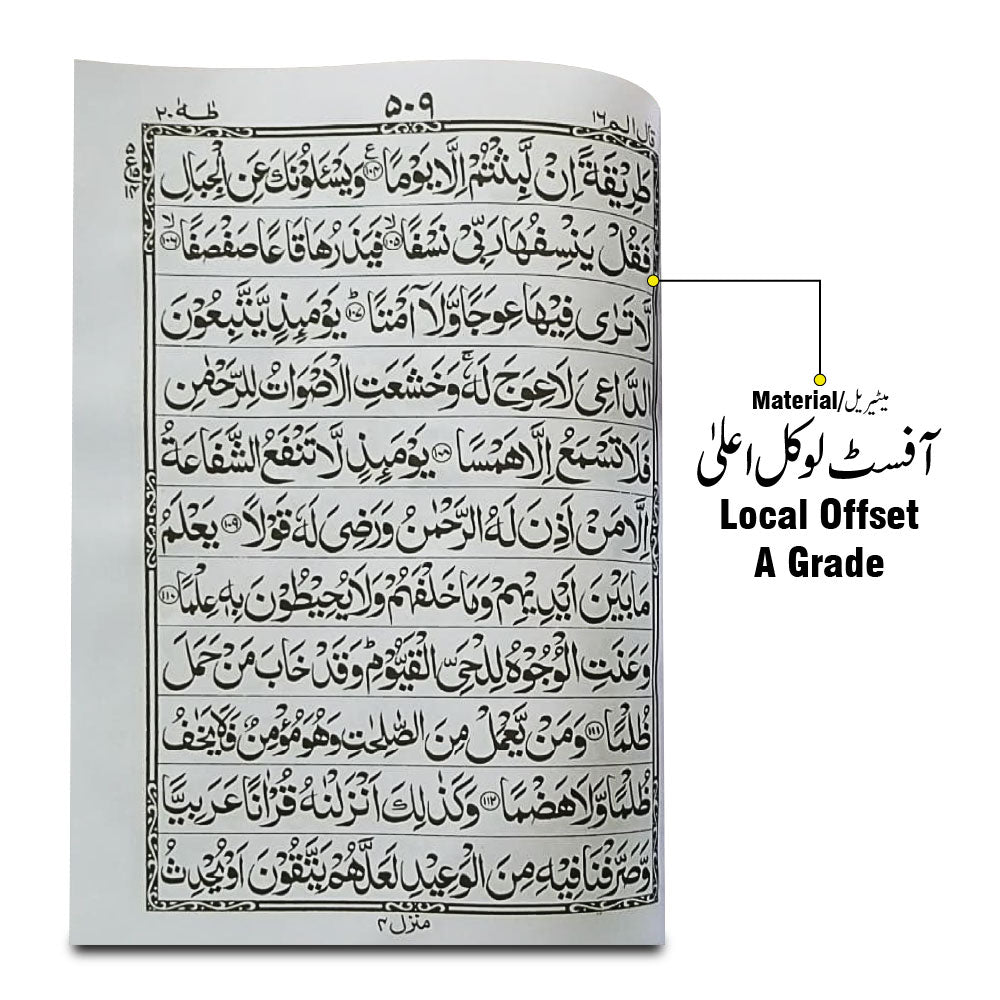 قال الم ١٦
٥٠٩
طٰهٰ ٢٠
طَرِيْقَةً اِنْ لَّبِثْتُمْ اِلَّا يَوْمًا ﴿١٠٤﴾ ع وَيَسْـَٔلُوْنَكَ عَنِ الْجِبَالِ
فَقُلْ يَنْسِفُهَا رَبِّيْ نَسْفًا ﴿١٠٥﴾ ۙ فَيَذَرُهَا قَاعًا صَفْصَفًا ﴿١٠٦﴾ ۙ
لَّا تَرٰى فِيْهَا عِوَجًا وَّلَاۤ اَمْتًا ﴿١٠٧﴾ ؕ يَوْمَئِذٍ يَّتَّبِعُوْنَ
الدَّاعِيَ لَا عِوَجَ لَهٗ ۚ وَخَشَعَتِ الْاَصْوَاتُ لِلرَّحْمٰنِ
فَلَا تَسْمَعُ اِلَّا هَمْسًا ﴿١٠٨﴾ يَوْمَئِذٍ لَّا تَنْفَعُ الشَّفَاعَةُ
اِلَّا مَنْ اَذِنَ لَهُ الرَّحْمٰنُ وَرَضِيَ لَهٗ قَوْلًا ﴿١٠٩﴾ يَعْلَمُ
مَا بَيْنَ اَيْدِيْهِمْ وَمَا خَلْفَهُمْ وَلَا يُحِيْطُوْنَ بِهٖ عِلْمًا ﴿١١٠﴾
وَعَنَتِ الْوُجُوْهُ لِلْحَيِّ الْقَيُّوْمِ ؕ وَقَدْ خَابَ مَنْ حَمَلَ
ظُلْمًا ﴿١١١﴾ وَمَنْ يَّعْمَلْ مِنَ الصّٰلِحٰتِ وَهُوَ مُؤْمِنٌ فَلَا يَخٰفُ
ظُلْمًا وَّلَا هَضْمًا ﴿١١٢﴾ وَكَذٰلِكَ اَنْزَلْنٰهُ قُرْاٰنًا عَرَبِيًّا
وَّصَرَّفْنَا فِيْهِ مِنَ الْوَعِيْدِ لَعَلَّهُمْ يَتَّقُوْنَ اَوْ يُحْدِثُ
منزل ٤
Material/میٹیریل
آفسٹ لوکل اعلیٰ
Local Offset
A Grade